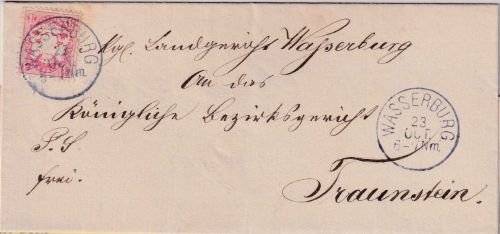 WASSERBURG
Kgl. Landgericht Wasserburg
An das
Königliche Bezirksgericht
P. S.
frei.
Traunstein.
WASSERBURG
23
OCT.
6-7 Nm.